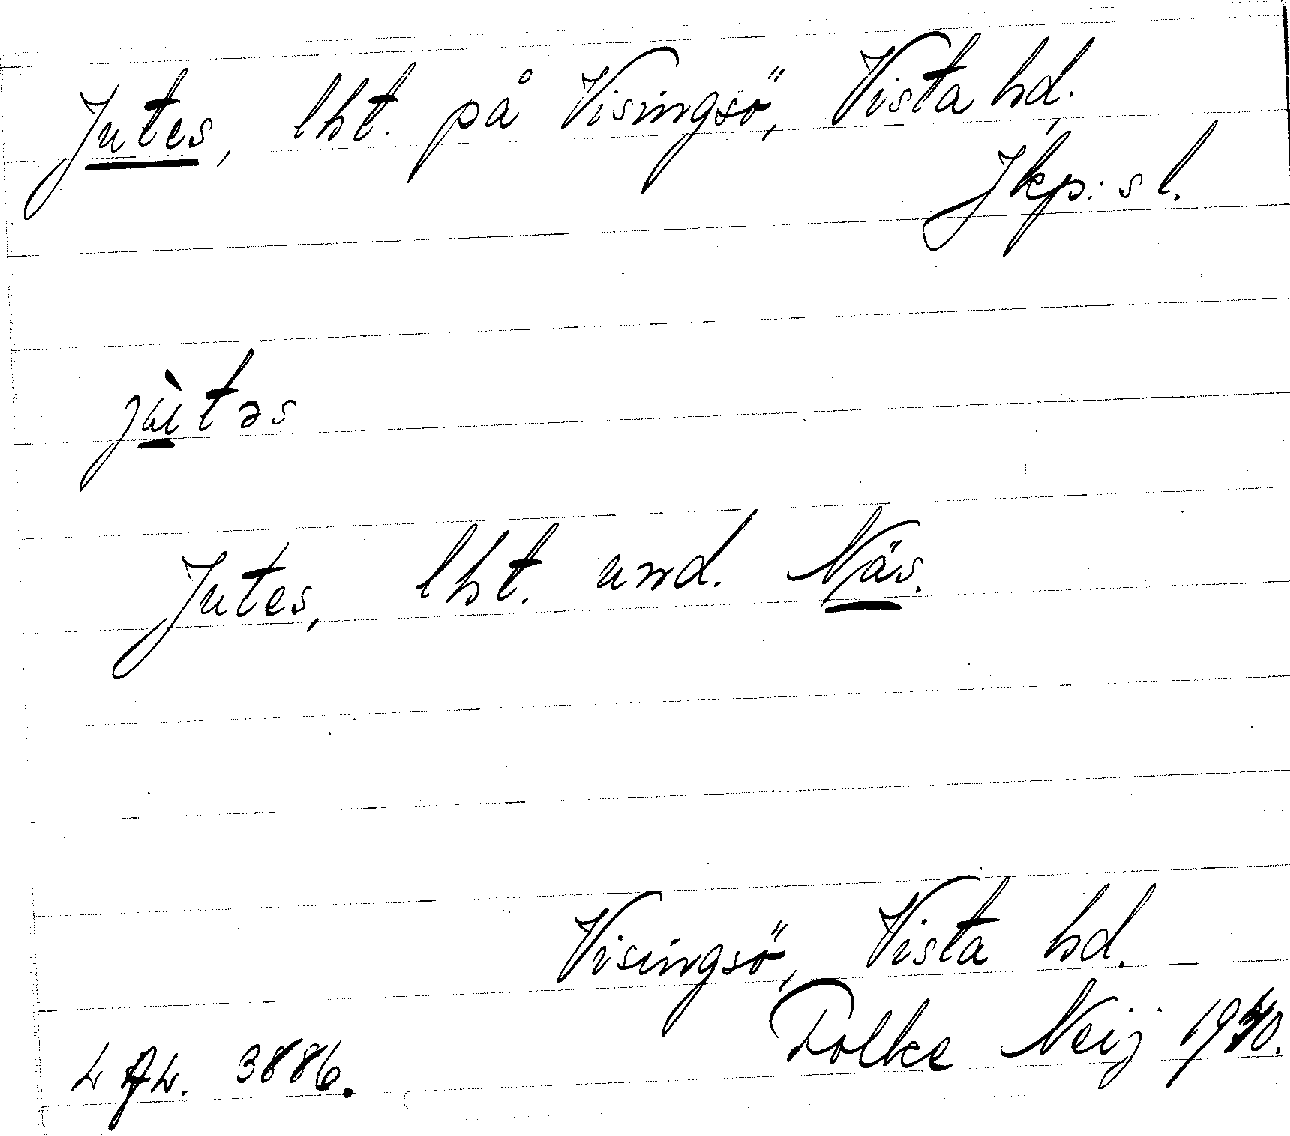 Jutes, lht. på Visingsö, Vista hd.
Jkp:s l.
jùtəs
Jutes, lht. und. Näs.
Visingsö, Vista hd.
L Af L. 3886.
Folke Neij 1940.